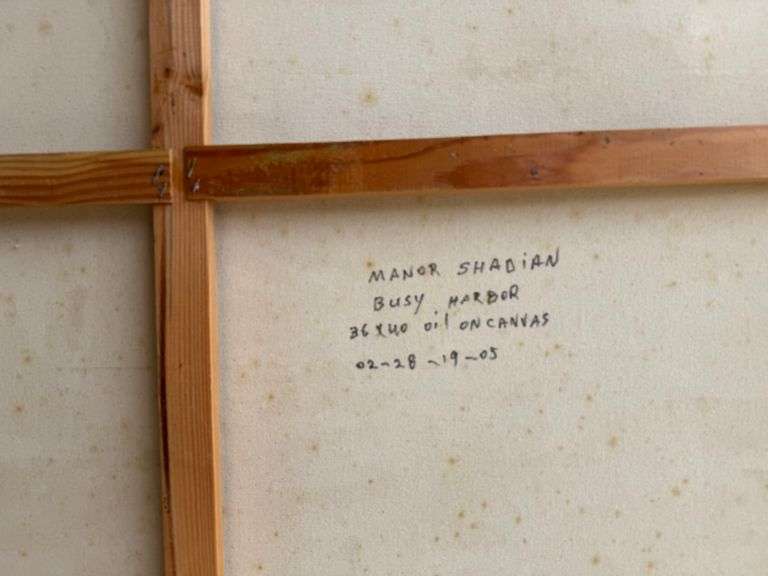 MANOR SHADIAN
BUSY HARBOR
36x40 oil ON CANVAS
02-28-19-05